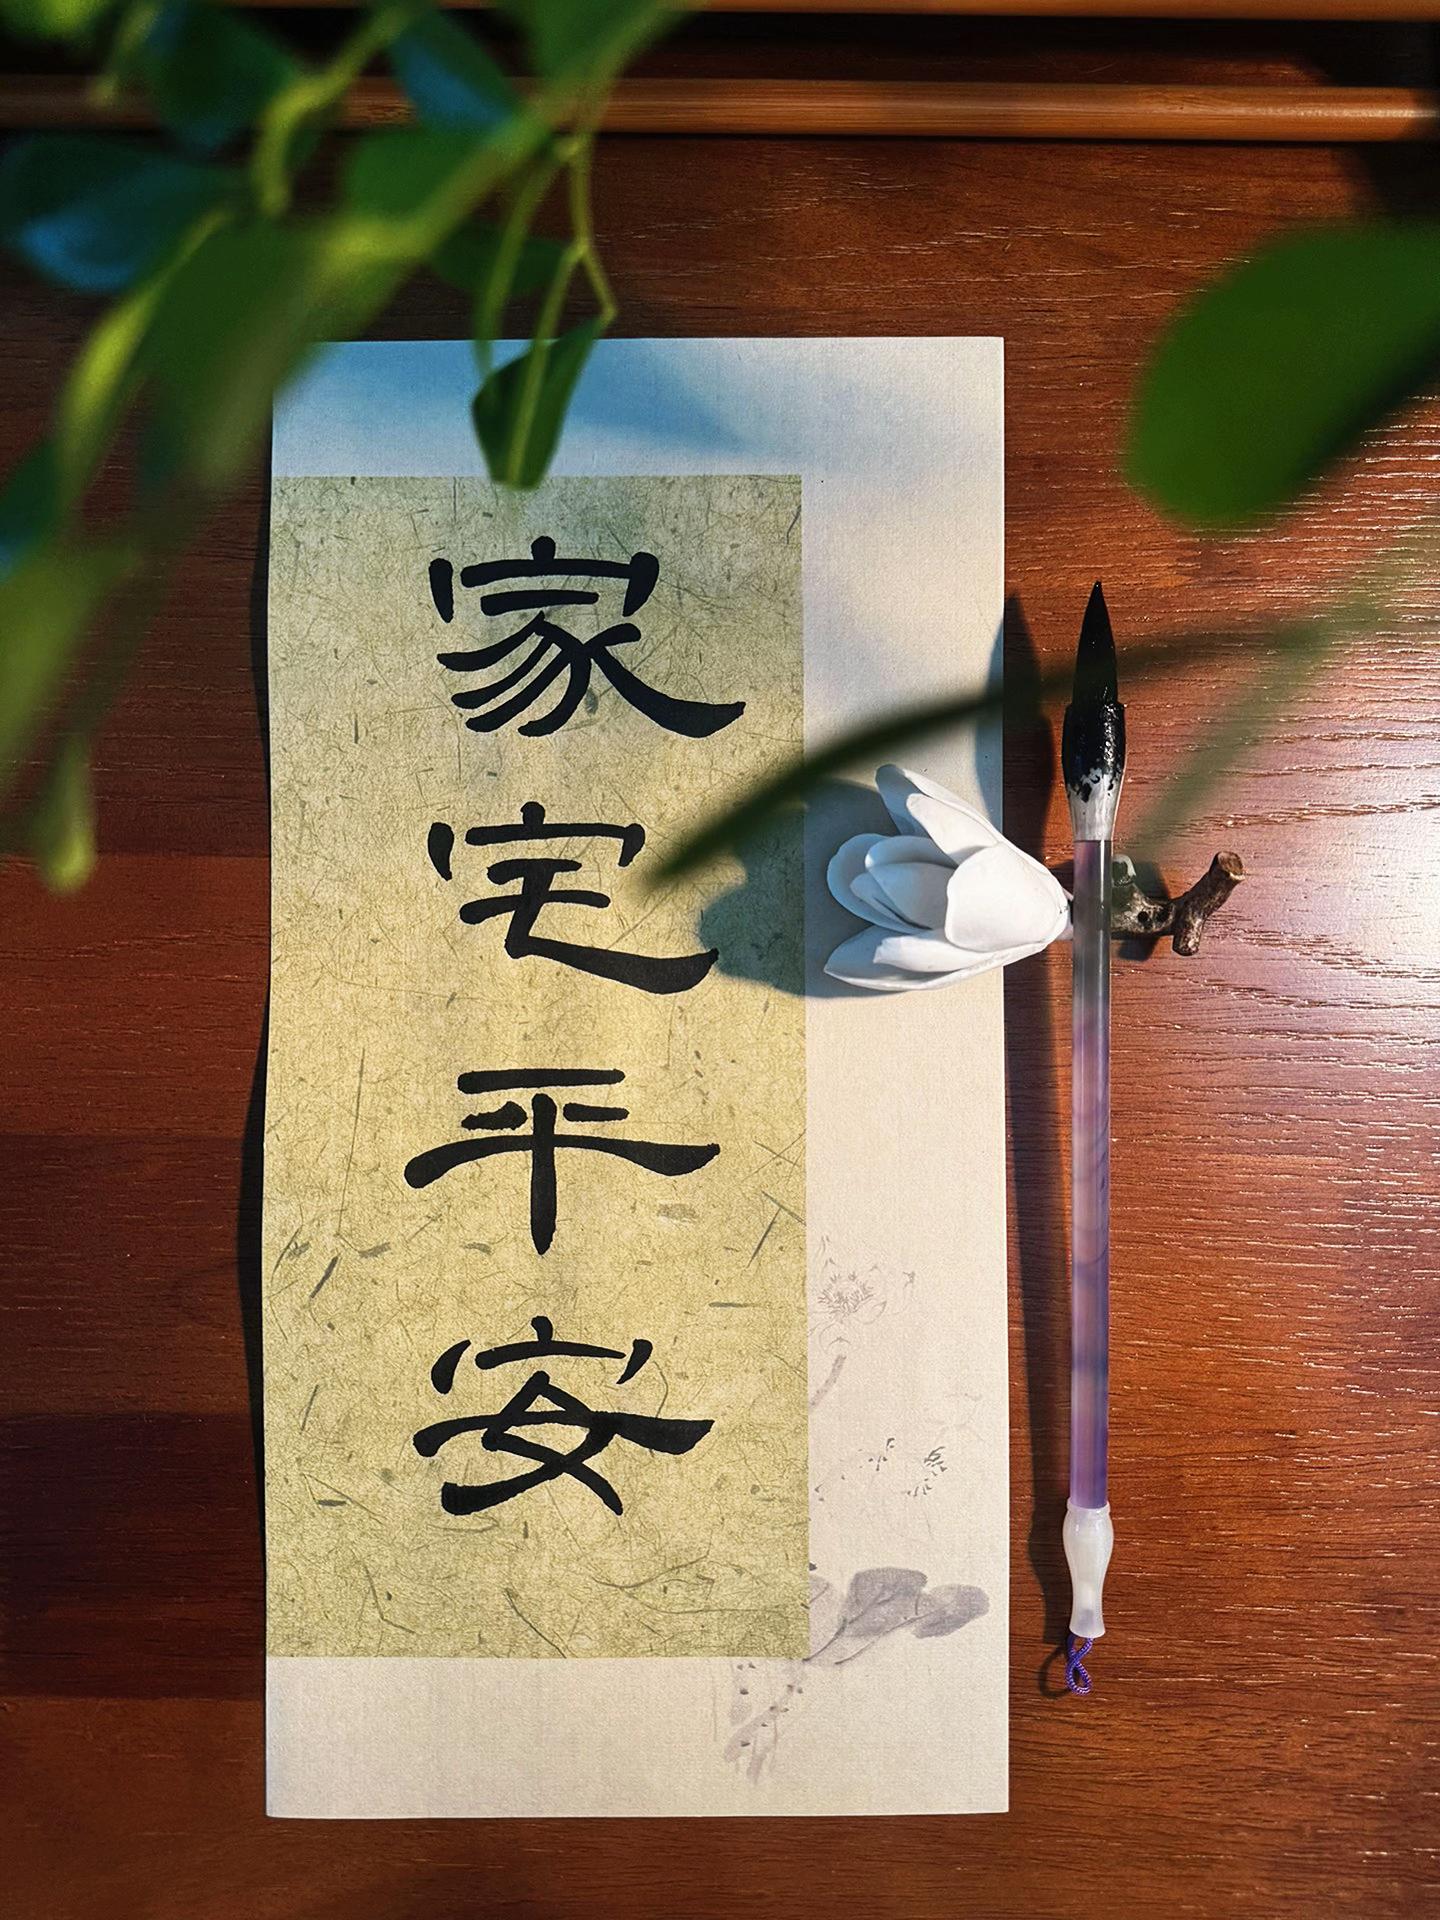 家宅平安